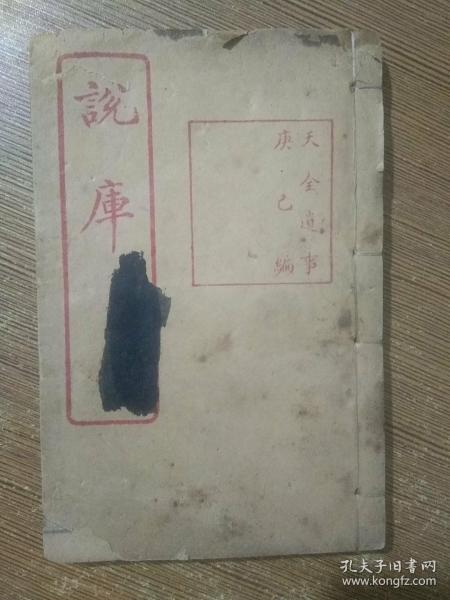 說庫
天全遺事
庚己編
孔夫子旧书网
www.kongfz.com